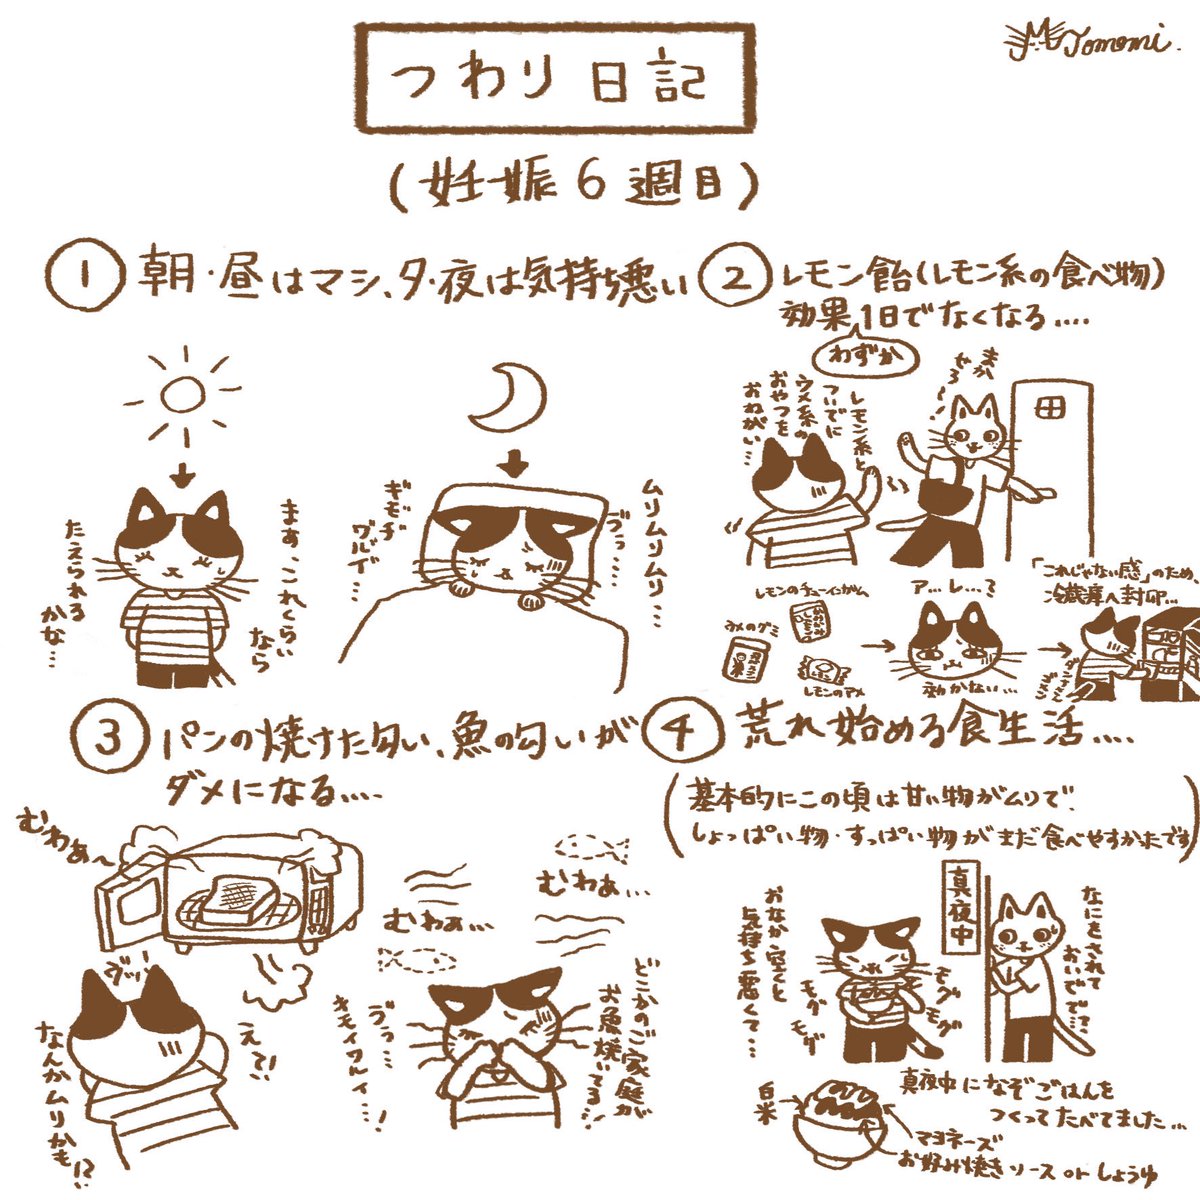 Tomomi.
つわり日記
(妊娠6週目)
① 朝・昼はマシ、夕・夜は気持ち悪い
まぁ、これくらいなら
たえられるかな…
ムリムリムリ…
ゔっ……
キモチワルイ…
② レモン飴(レモン系の食べ物)
効果1日でなくなる….
わずか
まかせろー!
レモン系と
ついでに
ウメ系の
おやつを
おねがい…
レモンのチューインガム
うめのグミ
レモンのアメ
ア…レ…?
効かない…
「これじゃない感」のため、
冷蔵庫へ封印…
③ パンの焼けた匂い、魚の匂いが
ダメになる….
むわぁ〜
ゔッ!
えて!!
なんかムリかも!?
むわぁ…
むわぁ…
どこかのご家庭が
お魚焼いてる…!
ゔぅ…
キモイワルイ…!
④ 荒れ始める食生活….
(基本的にこの頃は甘い物がムリで
しょっぱい物・すっぱい物がまだ食べやすかったです)
真夜中
なにをされて
おいでで…?
おなか空くと
気持ち悪くて…
モグモグ
モグモグ
真夜中になぞごはんを
つくってたべてました…
白米
マヨネーズ
お好み焼きソース or しょうゆ